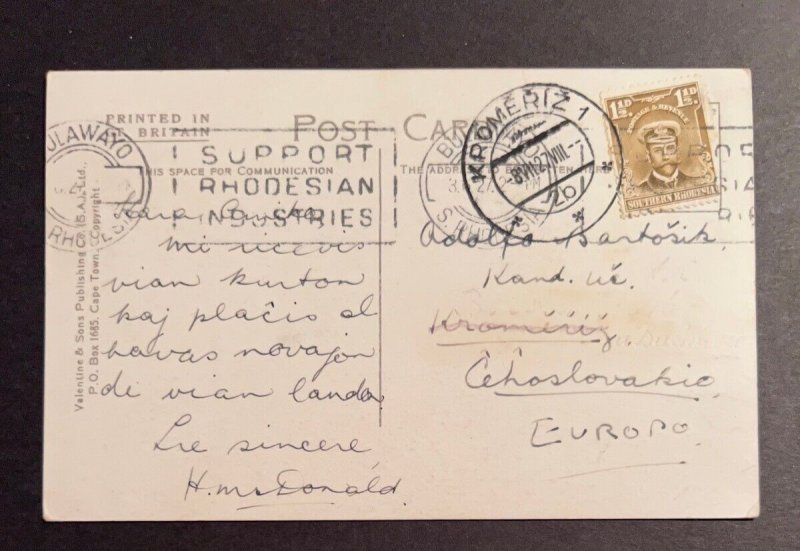 PRINTED IN
BRITAIN
POST CARD
THIS SPACE FOR COMMUNICATION
THE ADDRESS TO BE WRITTEN HERE
SUPPORT
RHODESIAN
INDUSTRIES
BULAWAYO
RHODESIA
KROMĚŘÍŽ 1
1½D. 1½D.
POSTAGE & REVENUE
SOUTHERN RHODESIA
Valentine & Sons Publishing Co. (S.A.), Ltd.,
P.O. Box 1685, Cape Town. Copyright.
Kara Amiko
mi ricevis
vian karton
kaj plaĉis al
havas novajon
di vian landa
Tre sincere
H. McDonald
Adolfo Bartošik
Kand. uč.
Kroměříž
Ĉeĥoslovakio
EUROPO